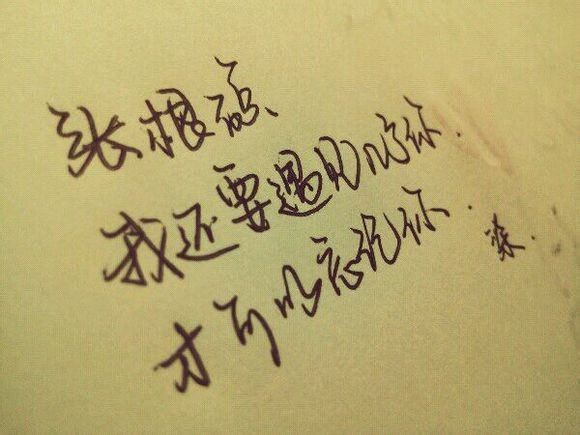 张根硕、
我还要遇见你.
才可以忘记你.